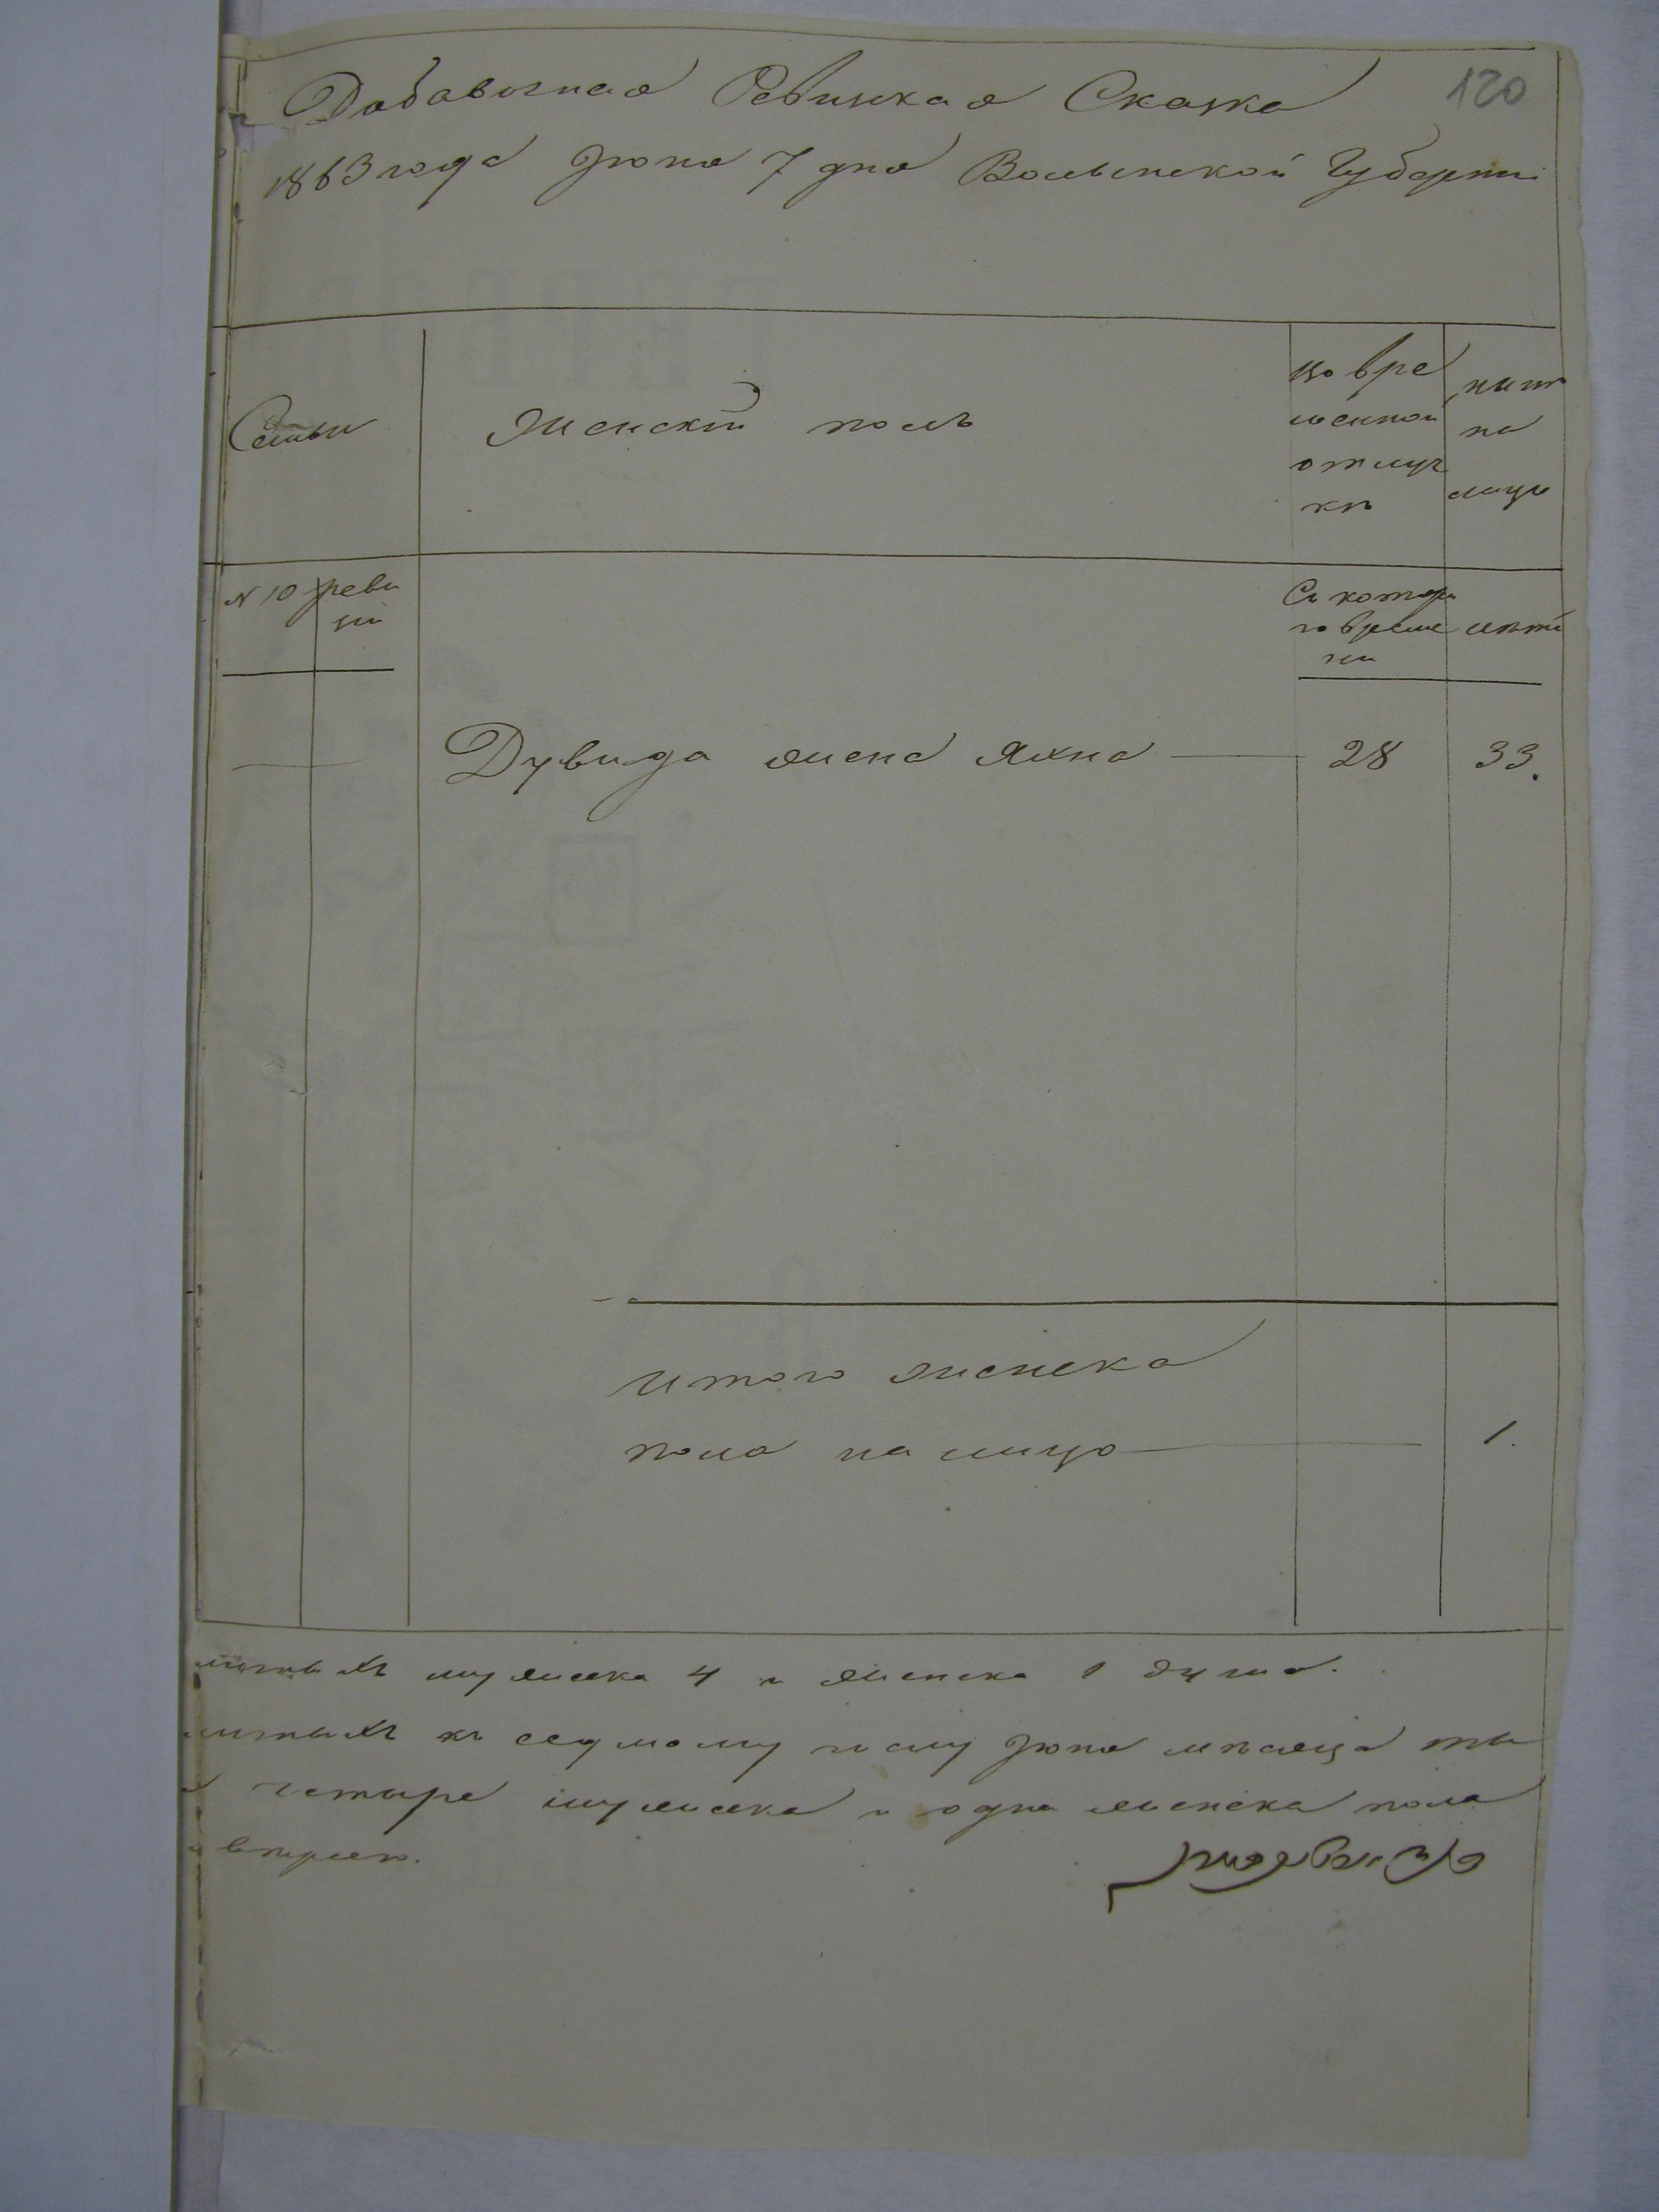 120
Добавочная Ревизкая Сказка
1863 года Июня 7 дня Волынской Губерни
Семьи
Женскiй полъ
во вре
менной
отлуч
къ
нынъ
на
лицо
N 10 реви
зiи
Съ котора
го време
ни
лъта
Дувида жена Яхна 28 33.
Итого женска
пола на лицо 1.
мужеска 4 и женска 1 душа.
къ седмому числу Июня мъсяца
четыре мужеска и одна женска пола